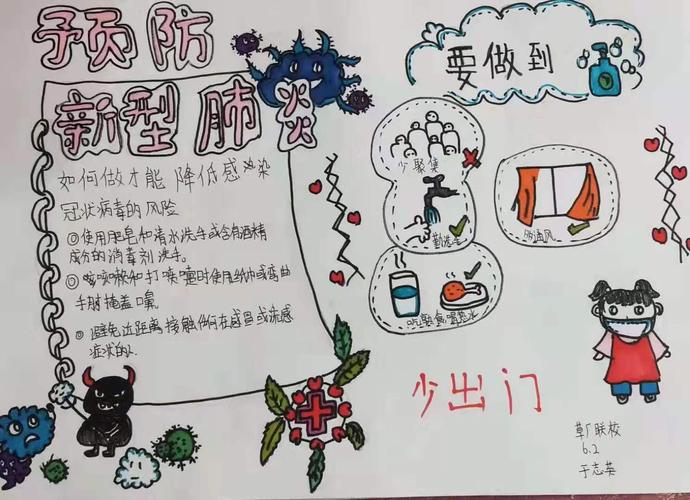 预防
新型肺炎
如何做才能降低感染
冠状病毒的风险
①使用肥皂和清水洗手或含有酒精
成份的消毒剂洗手。
②咳嗽和打喷嚏时使用纸巾或弯曲
手肘掩盖口鼻。
③避免近距离接触任何在感冒或流感
症状的人
要做到
少聚集
勤洗手
多通风
吃熟食喝热水
少出门
草厂联校
6.2
于志英